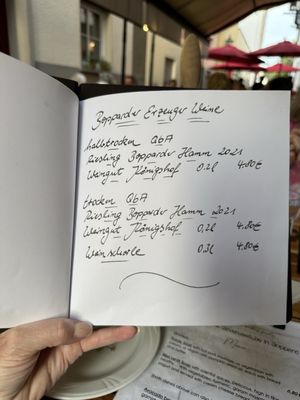 Bopparder Erzeuger Weine
halbtrocken QbA
Riesling Bopparder Hamm 2021
Weingut Königshof 0,2l 4.80€
trocken QbA
Riesling Bopparder Hamm 2021
Weingut Königshof 0,2l 4.80€
Weinschorle 0,3l 4.80€